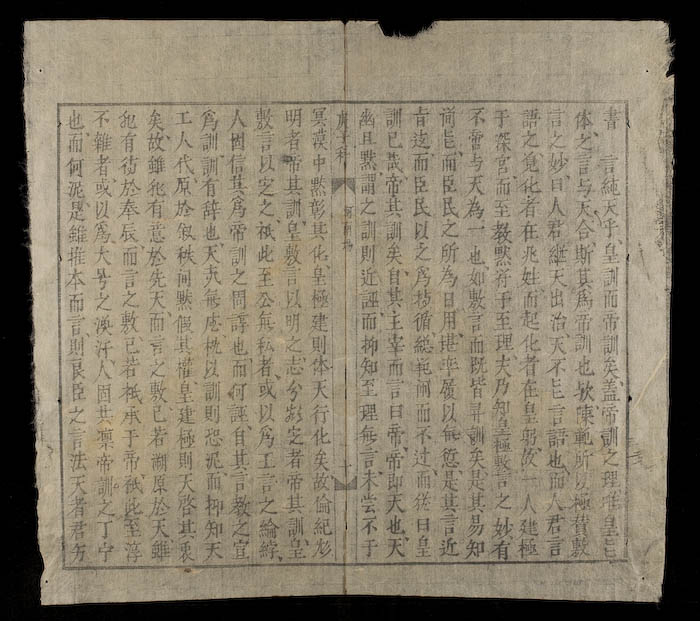 書 言純天乎皇訓而帝訓矣蓋帝訓之理唯皇㠯
体之言与天合斯其爲帝訓也欤陳範所以極贊敷
言之妙曰人君継天出治天不㠯言語也而人君言
語之竟化者在兆姓而起化者在皇躬故一人建極
于深宮而至教黙符乎至理夫乃知皇極敷言之妙有
不啻与天為一也如敷言而既皆彛訓矣是其易知
而臣民之所為日用堪率履以無愆是其言近
旨遠而臣民以之為持循総範囲而不过而猶曰皇
訓已哉帝其訓矣自其主宰而言曰帝帝即天也天
幽且黙謂之訓則近誣而抑知至理無言未尝不于
庚子科
十
冥漠中黙彰其化皇極建則体天行化矣故倫紀彰
明者帝其訓皇敷言以明之志兮凝定者帝其訓皇
敷言以定之祇此至公無私者或以爲工言之綸綍
人固信其爲帝訓之間諄也而何誣自其言教之宣
爲訓訓有辞也天夫無概以訓則恐泥而抑知天
工人代原於叙秩间黙假其權皇建極則天啓其衷
矣故雖犯有意於先天而言之敷已若溯原於天雖
犯有彷於奉辰而言之敷已若祇承于帝祇此至淳
不雜者或以爲大号之渙汗人固共禀帝訓之丁宁
也而何泥是雖推本而言則哀臣之言法天者君方